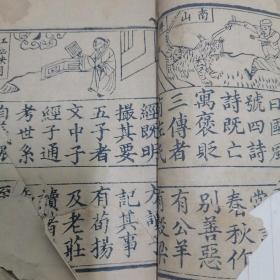 南山
國風
號四詩 當
詩既亡 春秋作
寓褒貶 別善惡
三傳者 有公羊
有 梁
經既明 方讀
撮其要 記其事
五子者 有荀揚
文中子 及老莊
經子通 讀諸
考世系
自